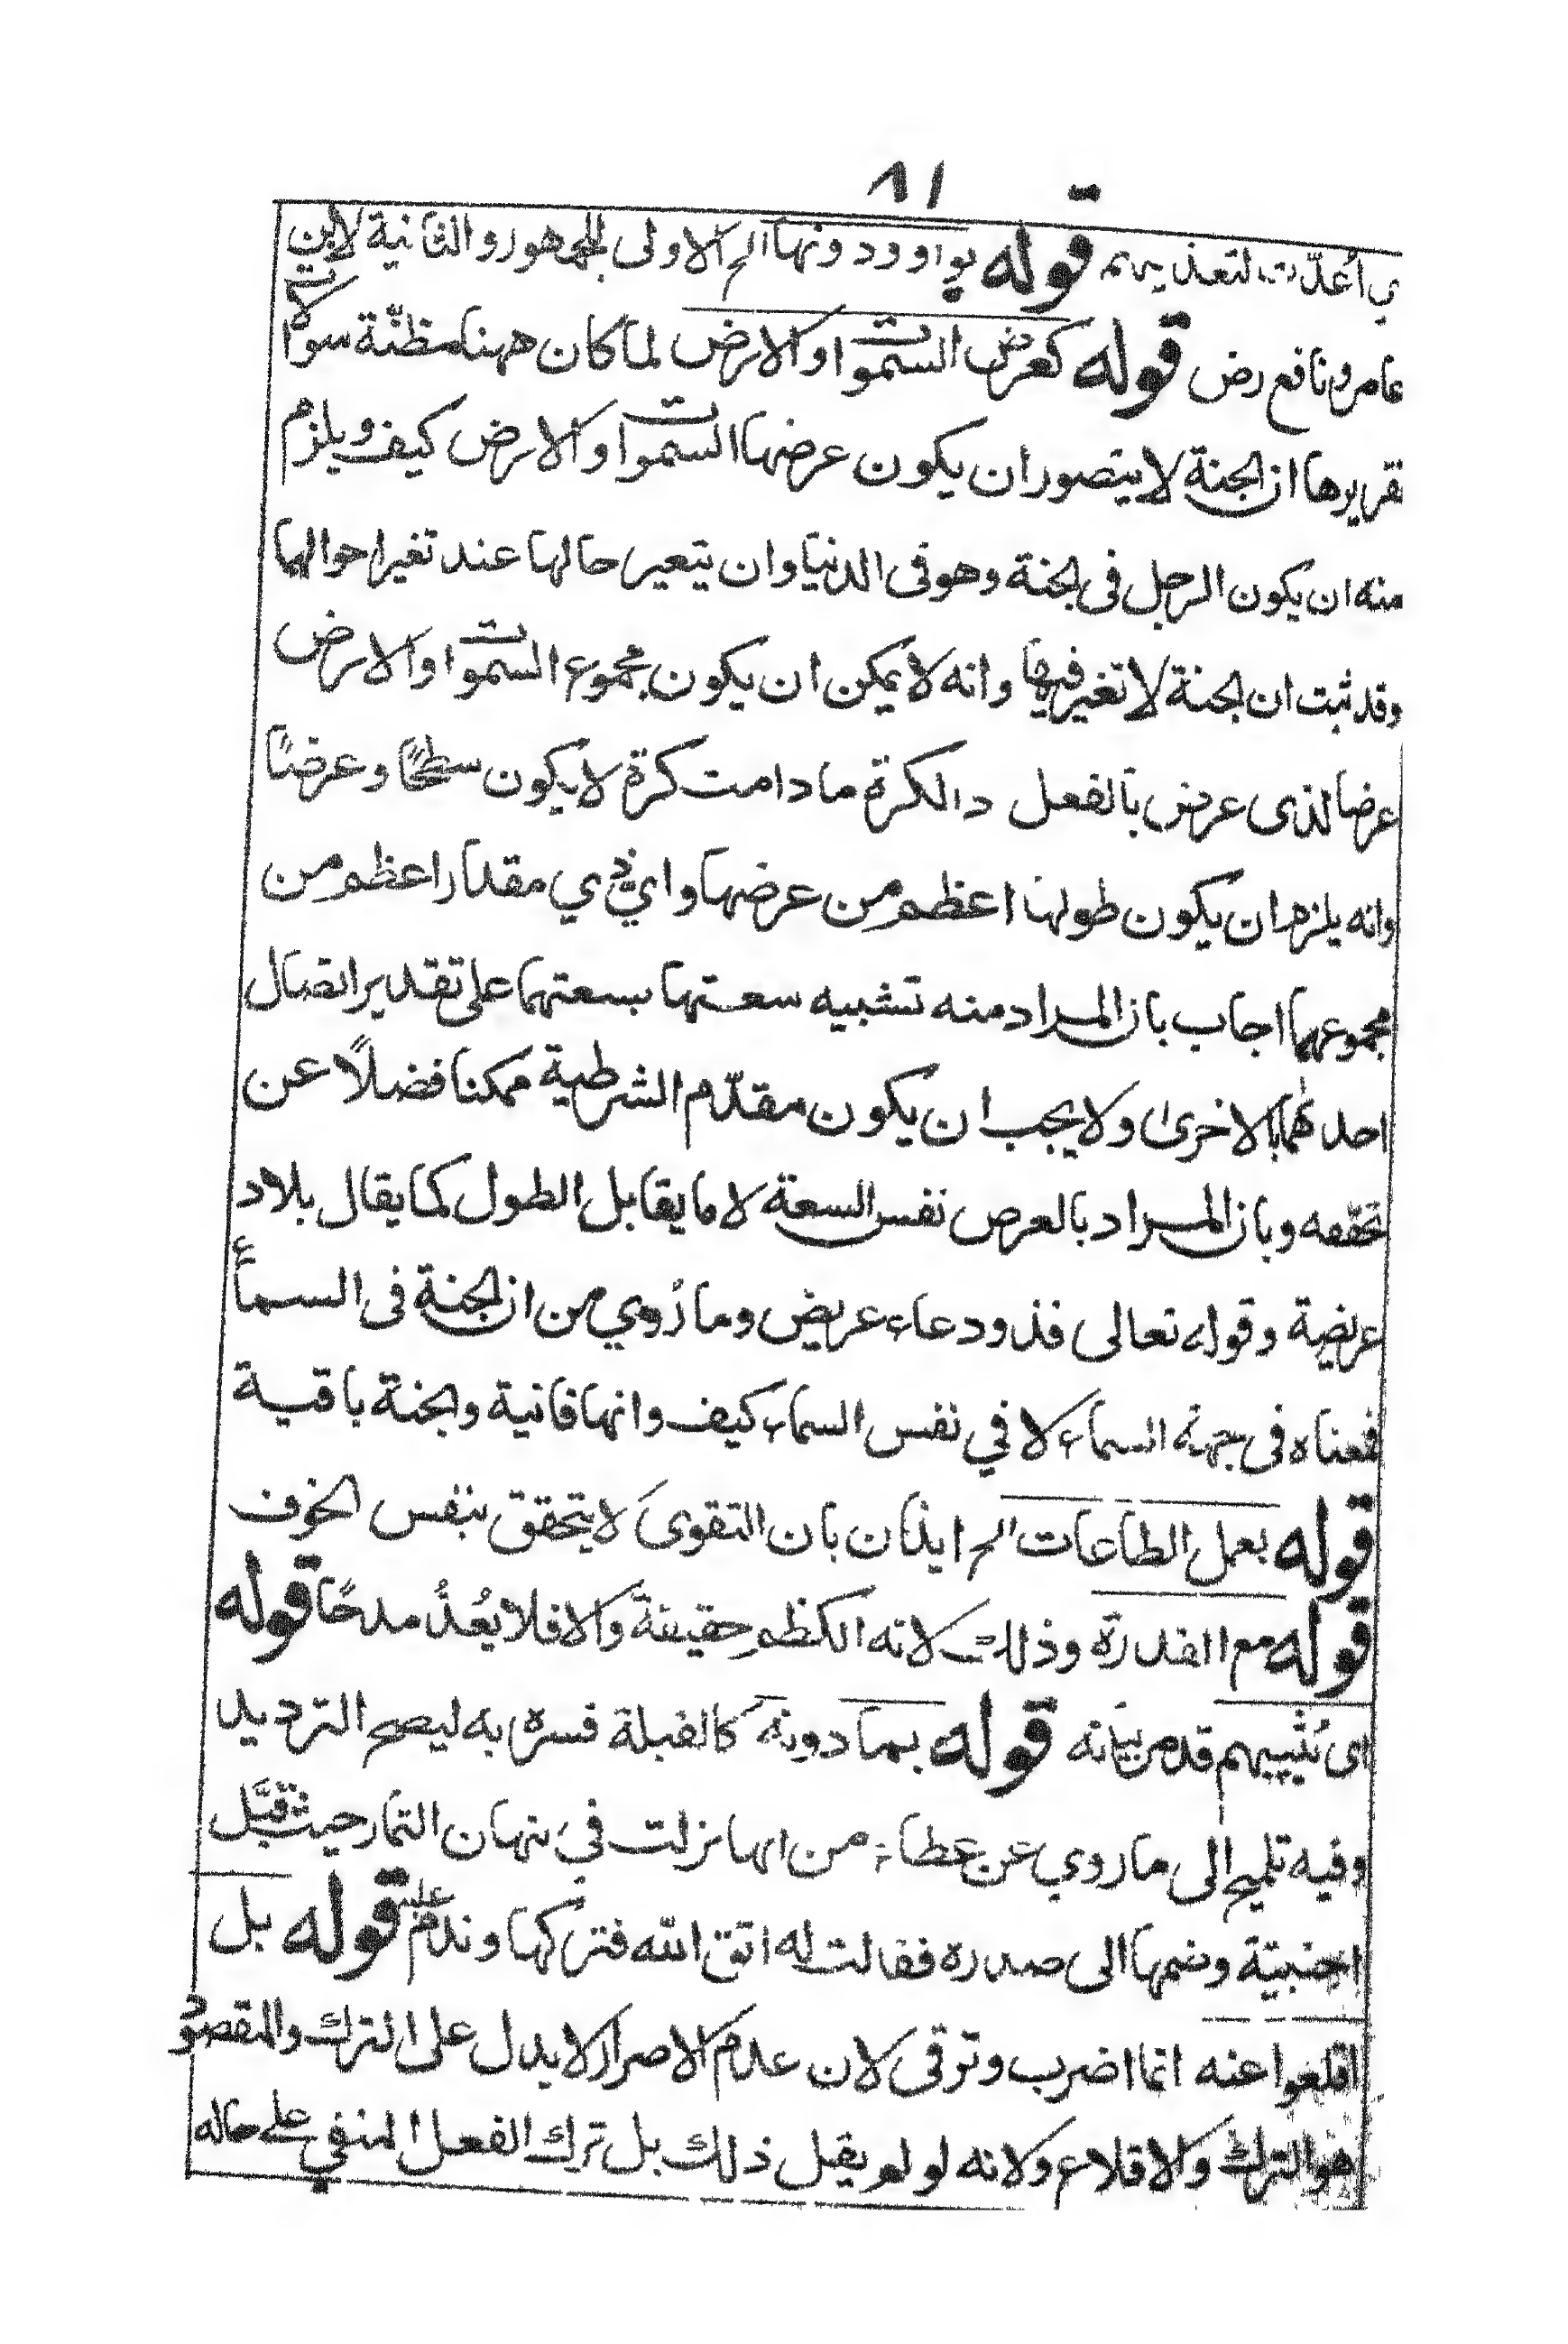 ٨١
أعدّت لتعذيبهم قوله بواو ودونها الخ الاولى للجمهور والثانية لابن
عامر ونافع رض قوله كعرض السموات والارض لما كان ههنا مظنّة سؤالات
تقريرها ان الجنة لا يتصور ان يكون عرضها السموات والارض كيف ويلزم
منه ان يكون الرجل فى الجنة وهو فى الدنيا وان يتعير حالها عند تغير احوالهما
وقد ثبت ان الجنة لا تغير فيها وانه لا يمكن ان يكون مجموع السموات والارض
عرضا لذى عرض بالفعل والكرة ما دامت كرة لا يكون سطحًا وعرضًا
وانه يلزم ان يكون طولها اعظم من عرضها واي ذي مقدار اعظم من
مجموعهما اجاب بان المراد منه تشبيه سعتها بسعتهما على تقدير اتصال
احدٰهما بالاخرى ولا يجب ان يكون مقدّم الشرطية ممكنا فضلًا عن
تحققه وبان المراد بالعرض نفس السعة لا ما يقابل الطول كما يقال بلاد
عريضة وقوله تعالى فذو دعاء عريض وما رُوي من ان الجنة فى السماء
فمعناه فى جهة السماء لا في نفس السماء كيف وانها فانية والجنة باقية
قوله بعمل الطاعات الخ ايذان بان التقوى لا يتحقق بنفس الخوف
قوله مع القدرة وذلك لانه الكظم حقيقة والا فلا يُعدُّ مدحًا قوله
اى نُثيبهم قد مر بيانه قوله بما دونه كالقبلة فسره به ليصح الترديد
وفيه تلميح الى ما روي عن عطاء من انها نزلت في نبهان التمار حيث قبّل
اجنبية وضمها الى صدره فقالت له اتق الله فتركها وندم عليه قوله بل
اقلعوا عنه انما اضرب وترقى لان عدم الاصرار لا يدل على الترك والمقصود
هو الترك والاقلاع ولانه لو لم يقل ذلك بل ترك الفعل المنفي على حاله